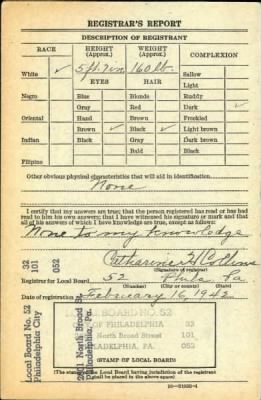 REGISTRAR'S REPORT
DESCRIPTION OF REGISTRANT
RACE HEIGHT (Approx.) WEIGHT (Approx.) COMPLEXION
White ✓ 5 ft. 7 in. 160 lb. Sallow
EYES HAIR Light
Negro Blue Blonde Ruddy
Gray Red Dark ✓
Oriental Hazel Brown Freckled
Brown ✓ Black ✓ Light brown
Indian Black Gray Dark brown
Bald Black
Filipino
Other obvious physical characteristics that will aid in identification
None
I certify that my answers are true; that the person registered has read or has had
read to him his own answers; that I have witnessed his signature or mark and that
all of his answers of which I have knowledge are true, except as follows:
None to my knowledge
Catharine H
(Signature of registrar)
Registrar for Local Board 52 Phila Pa
(Number) (City or county) (State)
Date of registration February 16, 1942
Local Board No. 52
Philadelphia City
32
101
052
North Broad St
Philadelphia, Pa.
LOCAL BOARD NO. 52
CITY OF PHILADELPHIA 32
North Broad Street 101
PHILADELPHIA, PA. 052
(STAMP OF LOCAL BOARD)
(The stamp of the Local Board having jurisdiction of the registrant
shall be placed in the above space)